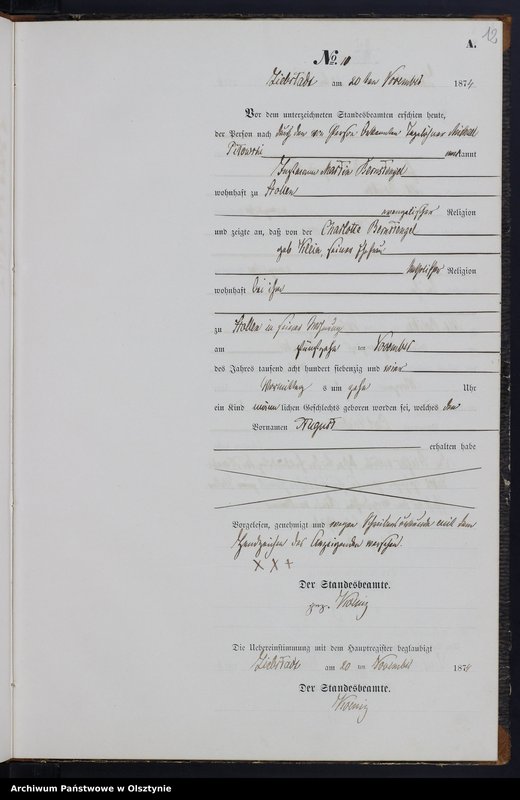 12
A.
No. 11
Liebstadt am 20 ten November 1874.
Vor dem unterzeichneten Standesbeamten erschien heute,
der Person nach durch den von Person bekannten Tagelöhner Michael
kannt
Instmann Martin Bernstengel
wohnhaft zu
evangelischer Religion
und zeigte an, daß von der Charlotte Bernstengel
geb Klein seiner Ehefrau
Religion
wohnhaft bei ihm
zu in seiner Wohnung
am fünfzehn ten November
des Jahres tausend acht hundert siebenzig und vier
Vormittag s um zehn Uhr
ein Kind männ lichen Geschlechts geboren worden sei, welches den
Vornamen August
erhalten habe
Vorgelesen, genehmigt und wegen Schreibensunkunde mit dem
Handzeichen des Anzeigenden versehen.
X X +
Der Standesbeamte.
gez. Koenig
Die Uebereinstimmung mit dem Hauptregister beglaubigt
Liebstadt am 20 ten November 1874
Der Standesbeamte.
Koenig
Archiwum Państwowe w Olsztynie